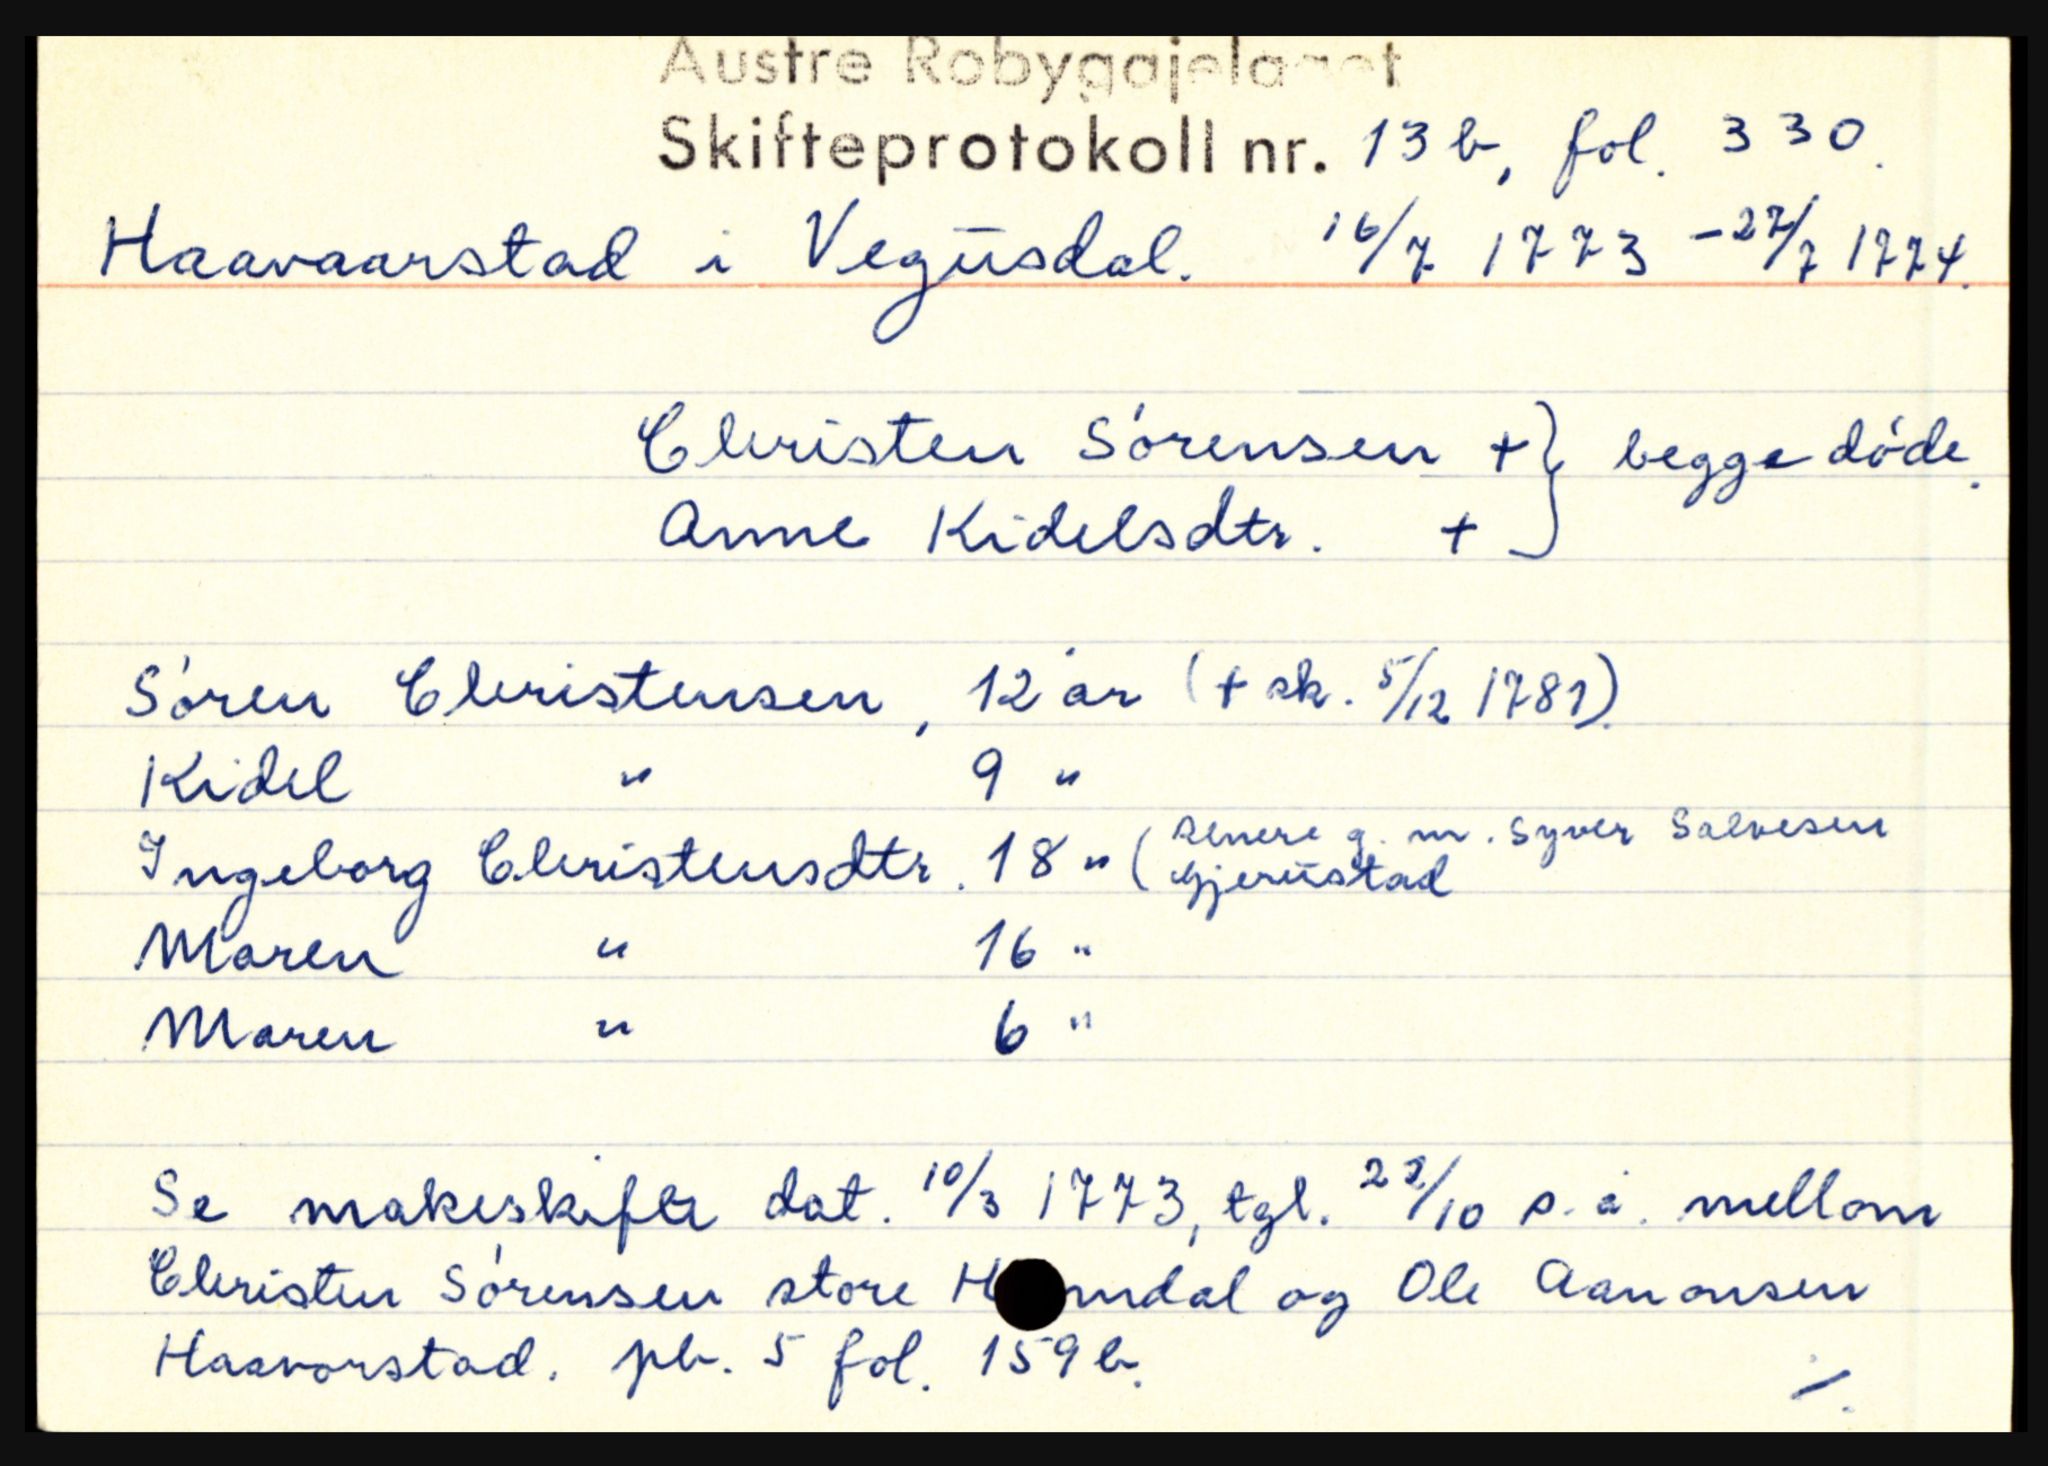 Austre Robygdelaget
Skifteprotokoll nr. 13 b, fol. 330.
Haavaarstad i Vegusdal. 16/7 1773 – 27/7 1774.
Christen Sörensen + } begge döde.
Anne Kidelsdtr. +
Sören Christensen, 12 år (+ sk. 5/12 1781).
Kidel " 9 "
Ingeborg Christensdtr. 18 " ( senere g. m. Syver Salvesen
Gjerustad
Maren " 16 "
Maren " 6 "
Se makeskifte dat. 10/3 1773, tgl. 22/10 s. å. mellom
Christen Sörensen store og Ole Aanonsen
Haavorstad. pb. 5 fol. 159 b.
⁒